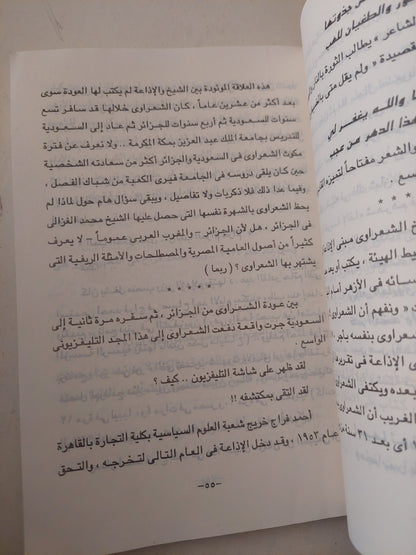 هذه العلاقة الموئودة بين الشيخ والإذاعة لم يكتب لها العودة سوى
بعد أكثر من عشرين عاماً ، كان الشعراوى خلالها قد سافر تسع
سنوات للسعودية ثم أربع سنوات للجزائر ثم عاد إلى السعودية
للتدريس بجامعة الملك عبد العزيز بمكة المكرمة .. ولا نعرف عن فترة
مكوث الشعراوى فى السعودية والجزائر أكثر من سعادته الشخصية
حين كان يلقى دروسه فى الجامعة فيرى الكعبة من شباك الفصل ،
وفيما عدا ذلك فلا ذكريات ولا تفاصيل ، ويبقى سؤال هام حول لماذا لم
يحظ الشعراوى بالشهرة نفسها التى حصل عليها الشيخ محمد الغزالى
فى الجزائر ، هل لأن الجزائر – والمغرب العربى عموماً – لا يعرف
كثيراً من أصول العامية المصرية والمصطلحات والأمثلة الريفية التى
يشتهر بها الشعراوى ؟ ( ربما )
* * * * * *
بين عودة الشعراوى من الجزائر ، ثم سفره مرة ثانية إلى
السعودية جرت واقعة دفعت الشعراوى إلى هذا المجد التليفزيونى
الواسع .
لقد ظهر على شاشة التليفزيون .. كيف ؟
لقد التقى بمكتشفه !!
أحمد فراج خريج شعبة العلوم السياسية بكلية التجارة بالقاهرة
عام ١٩٥٣ ، وقد دخل الإذاعة فى العام التالى لتخرجه ، والتحق
–٥٥–
والطغيان للهب
الشاعر » يطالب الثورة
قصيدة « ولم يقل متى
والله يغفر لى
هذا الدهر من عجب
والشعر مفتاحاً لتميزه
تسع .
* * *
الشعراوى مبنى
الهيئة ، يكتب
فى الأزهر أمام
« ونفهم أن
الشعراوى بنفسه
الإذاعة فى
بعده ويكتفى
الغريب أن
أى بعد ٣١ سنة